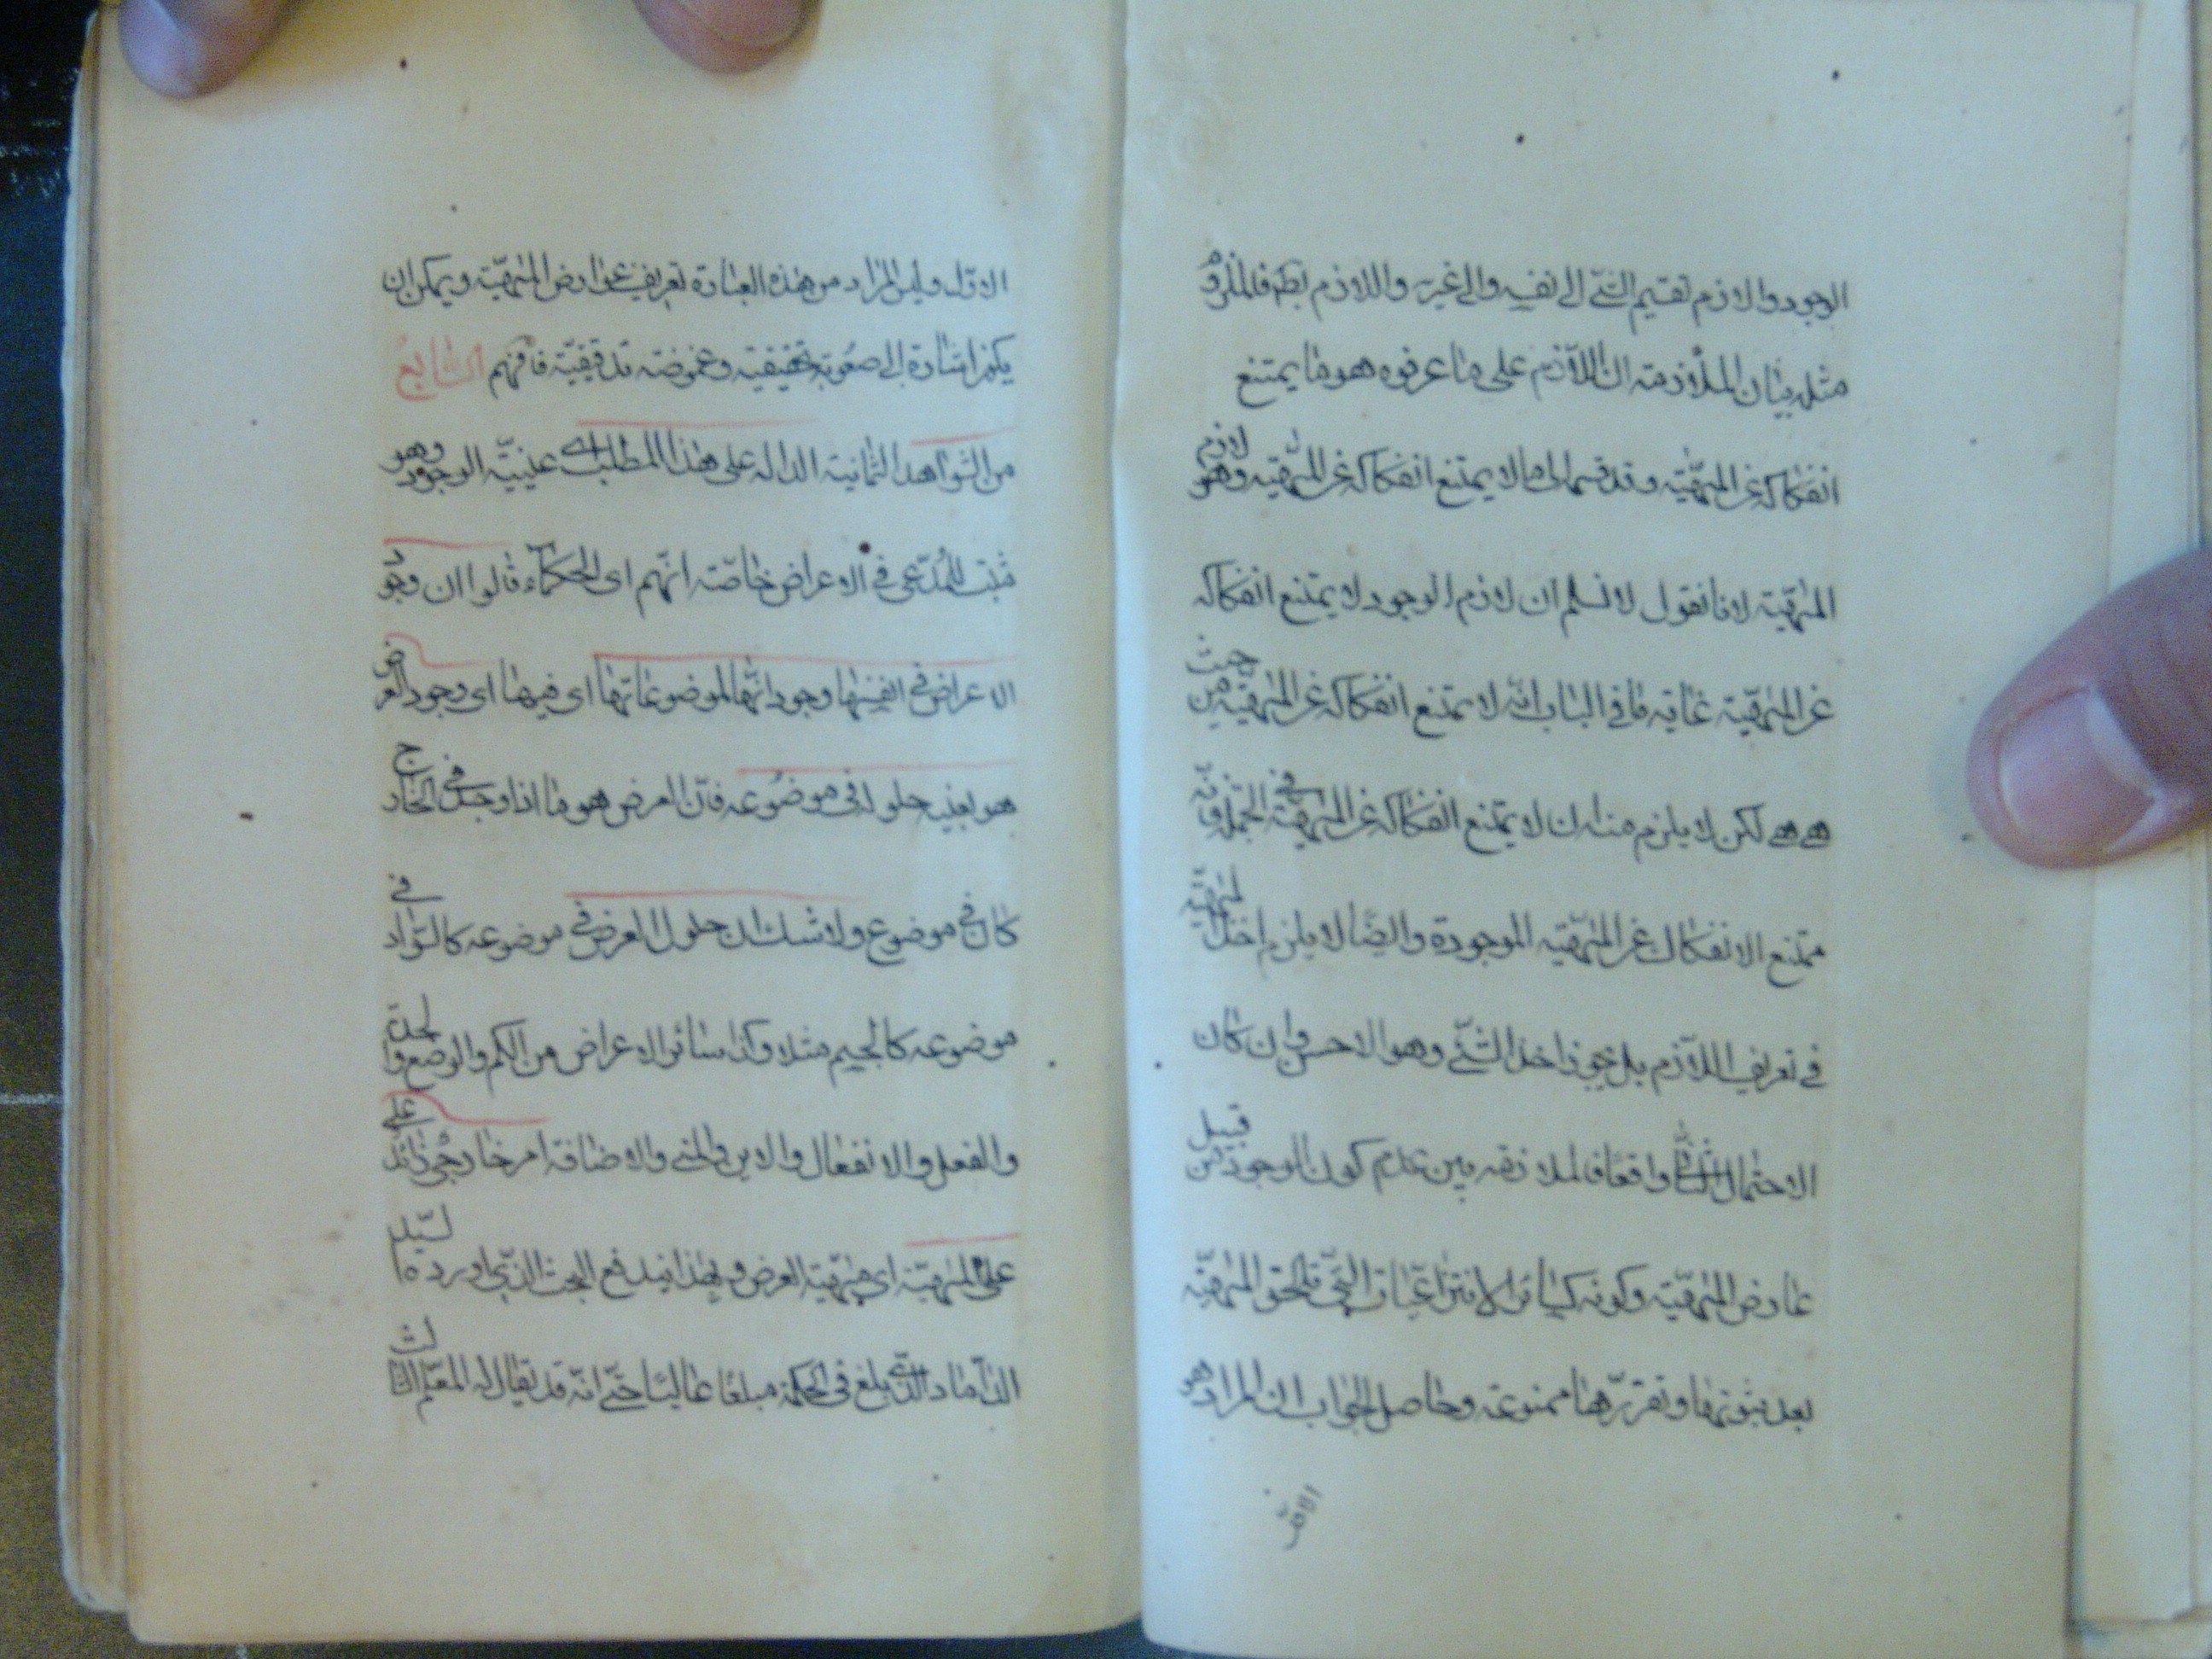 الوجود والا لازم تقسيم الشئ الى نفسه والى غيره واللازم بط فالملزوم
مثله بيان الملازمة ان اللازم على ما عرفوه هو ما يمتنع
انفكاكه عن المهية وقد قسم الى ما لا يمتنع انفكاكه عن المهية وهو لازم
المهية لانا نقول لا نسلم ان لازم الوجود لا يمتنع انفكاكه
عن المهية غاية ما في الباب انه لا يمتنع انفكاكه عن المهية من حيث
هي هي لكن لا يلزم منه ان لا يمتنع انفكاكه عن المهية في الجملة فانه
ممتنع الانفكاك عن المهية الموجودة وايضا لا يلزم اخذ المهية
في تعريف اللازم بل يجوز اخذ الشئ وهو الاحسن وان كان
الاحتمال الثاني واقعا فالملازمة بين عدم كون الوجود من قبيل
عارض المهية وكونه كسائر الانتزاعيات التي تلحق المهية
بعد ثبوتها وتقررها ممنوعة وحاصل الجواب ان المراد هو
الاول وليس المراد من هذه العبارة تعريف عوارض المهية ويمكن ان
يكون اشارة الى صعوبة تحقيقية وغموضة تدقيقية فافهم السابع
من الشواهد الثمانية الدالة على هذا المطلب اى عينية الوجود وهو
مثبت للمدعى في الاعراض خاصة انهم اى الحكماء قالوا ان وجود
الاعراض في انفسها وجوداتها لموضوعاتها اى فيها اى وجود العرض
هو بعينه حلوله فى موضوعه فان العرض هو ما اذا وجد في الخارج
كان في موضوع ولا شك ان حلول العرض في موضوعه كالسواد في
موضوعه كالجسم مثلا وكذا سائر الاعراض من الكم والوضع والجدة
والفعل والانفعال والاين والمتى والاضافة امر خارجى زائد على
على المهية اى مهية العرض وبهذا اندفع البحث الذى اورده السيد
الداماد الذى بلغ فى الحكمة مبلغا عاليا حتى انه قد يقال له المعلم الثالث